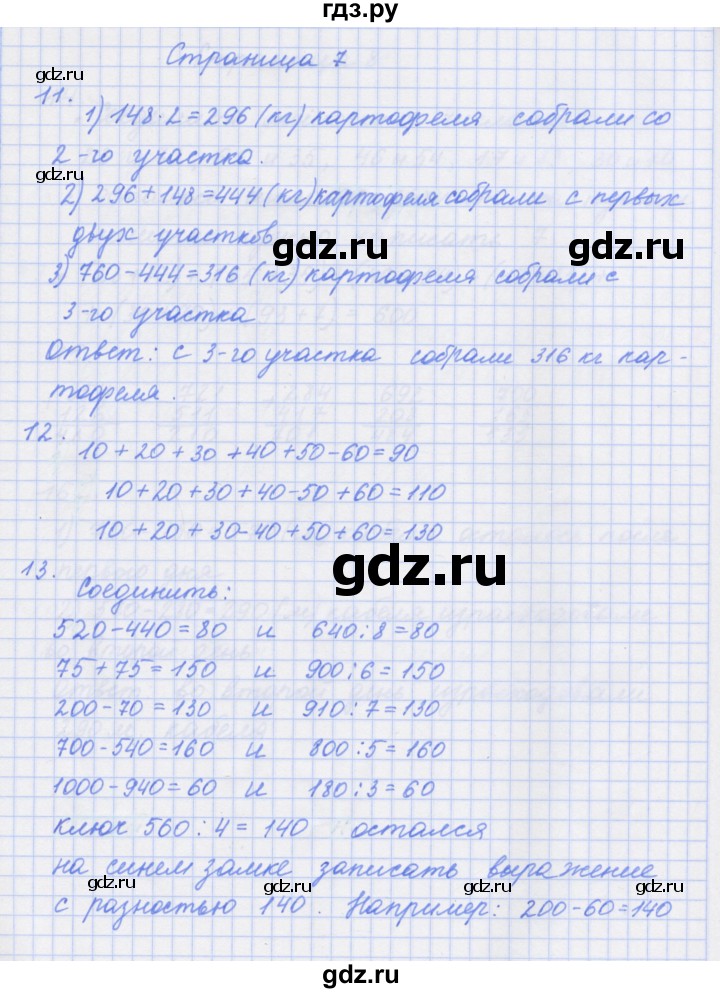 гдз.ру
Страница 7
gdz.ru
gdz.ru
11.
1) 148·2=296 (кг) картофеля собрали со
2-го участка.
gdz.ru
gdz.ru
2) 296+148=444 (кг) картофеля собрали с первых
двух участков
gdz.ru
3) 760-444=316 (кг) картофеля собрали с
3-го участка
Ответ: с 3-го участка собрали 316 кг кар-
тофеля.
12.
10+20+30+40+50-60=90
10+20+30+40-50+60=110
10+20+30-40+50+60=130
13.
gdz.ru
Соединить:
520-440=80 и 640:8=80
75+75=150 и 900:6=150
200-70=130 и 910:7=130
700-540=160 и 800:5=160
1000-940=60 и 180:3=60
ключ 560:4=140 остался
на синем замке записать выражение
gdz.ru
gdz.ru
gdz.ru
с разностью 140. Например: 200-60=140
gdz.ru